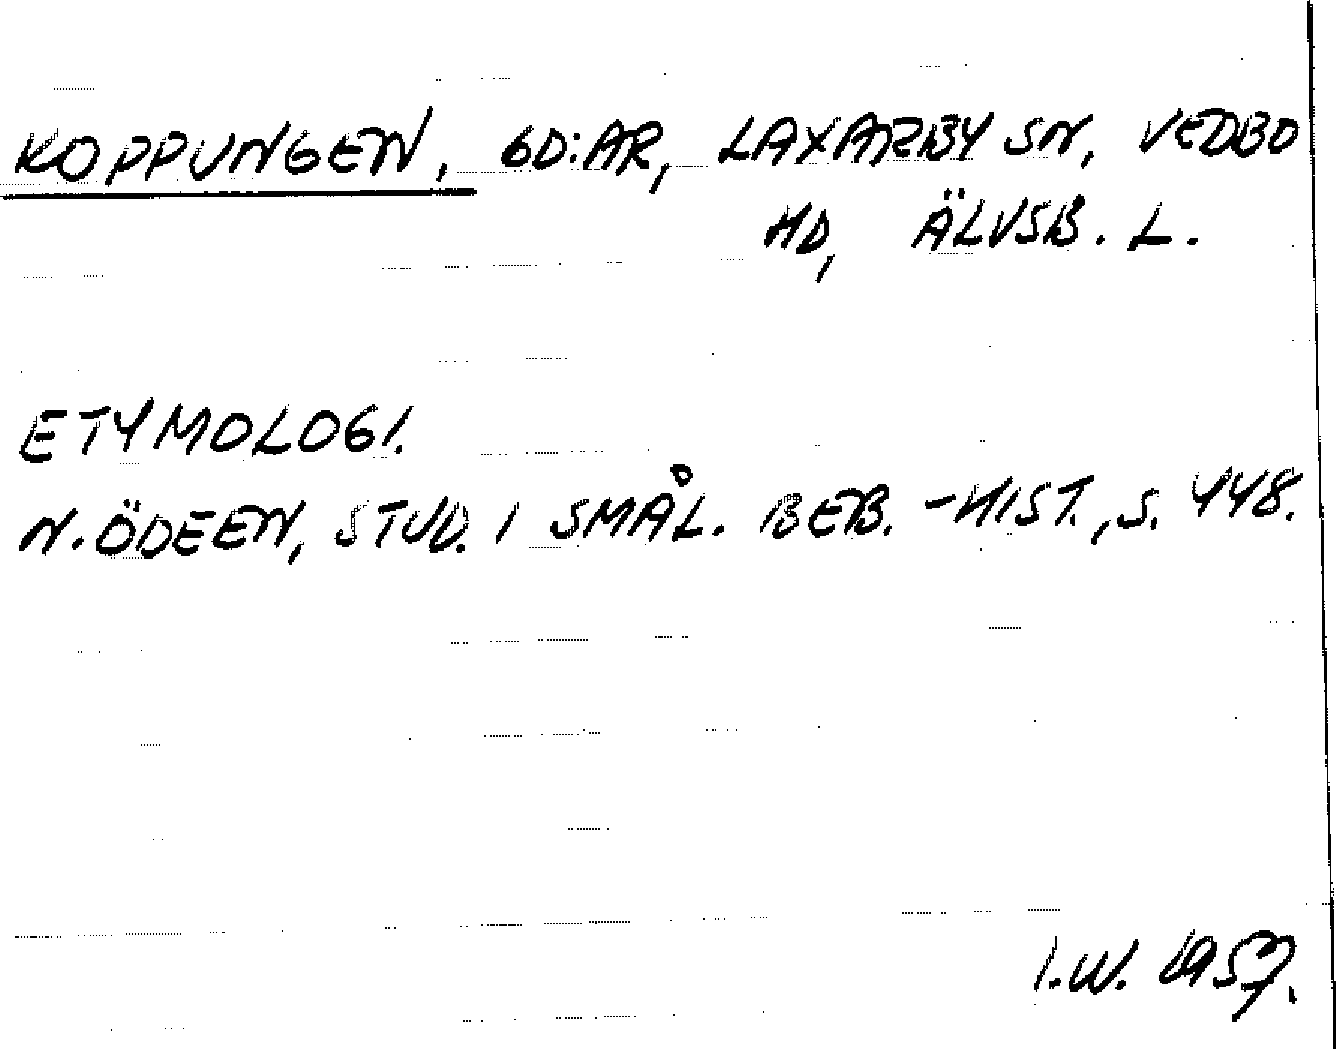 KOPPUNGEN, GD:AR, LAXARBY SN, VEDBO
HD, ÄLVSB. L.
ETYMOLOGI.
N. ÖDEEN, STUD. I SMÅL. BEB.-HIST., S. 448.
I.W. 1957.